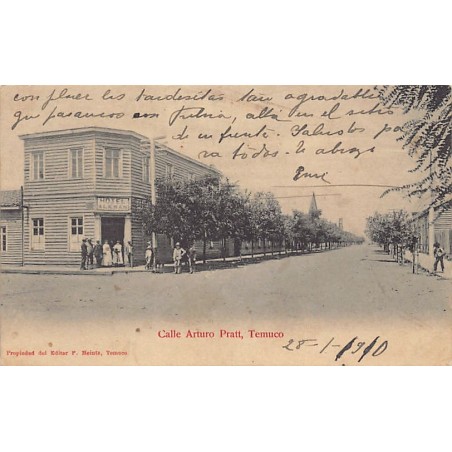 con placer las tardesitas tan agradables
que pasamos con Fulvia, allá en el sitio
de en frente. Saludos pa
ra todos. Te abraza
HOTEL
ALEMAN
Calle Arturo Pratt, Temuco
Propiedad del Editor F. , Temuco
28-1-910